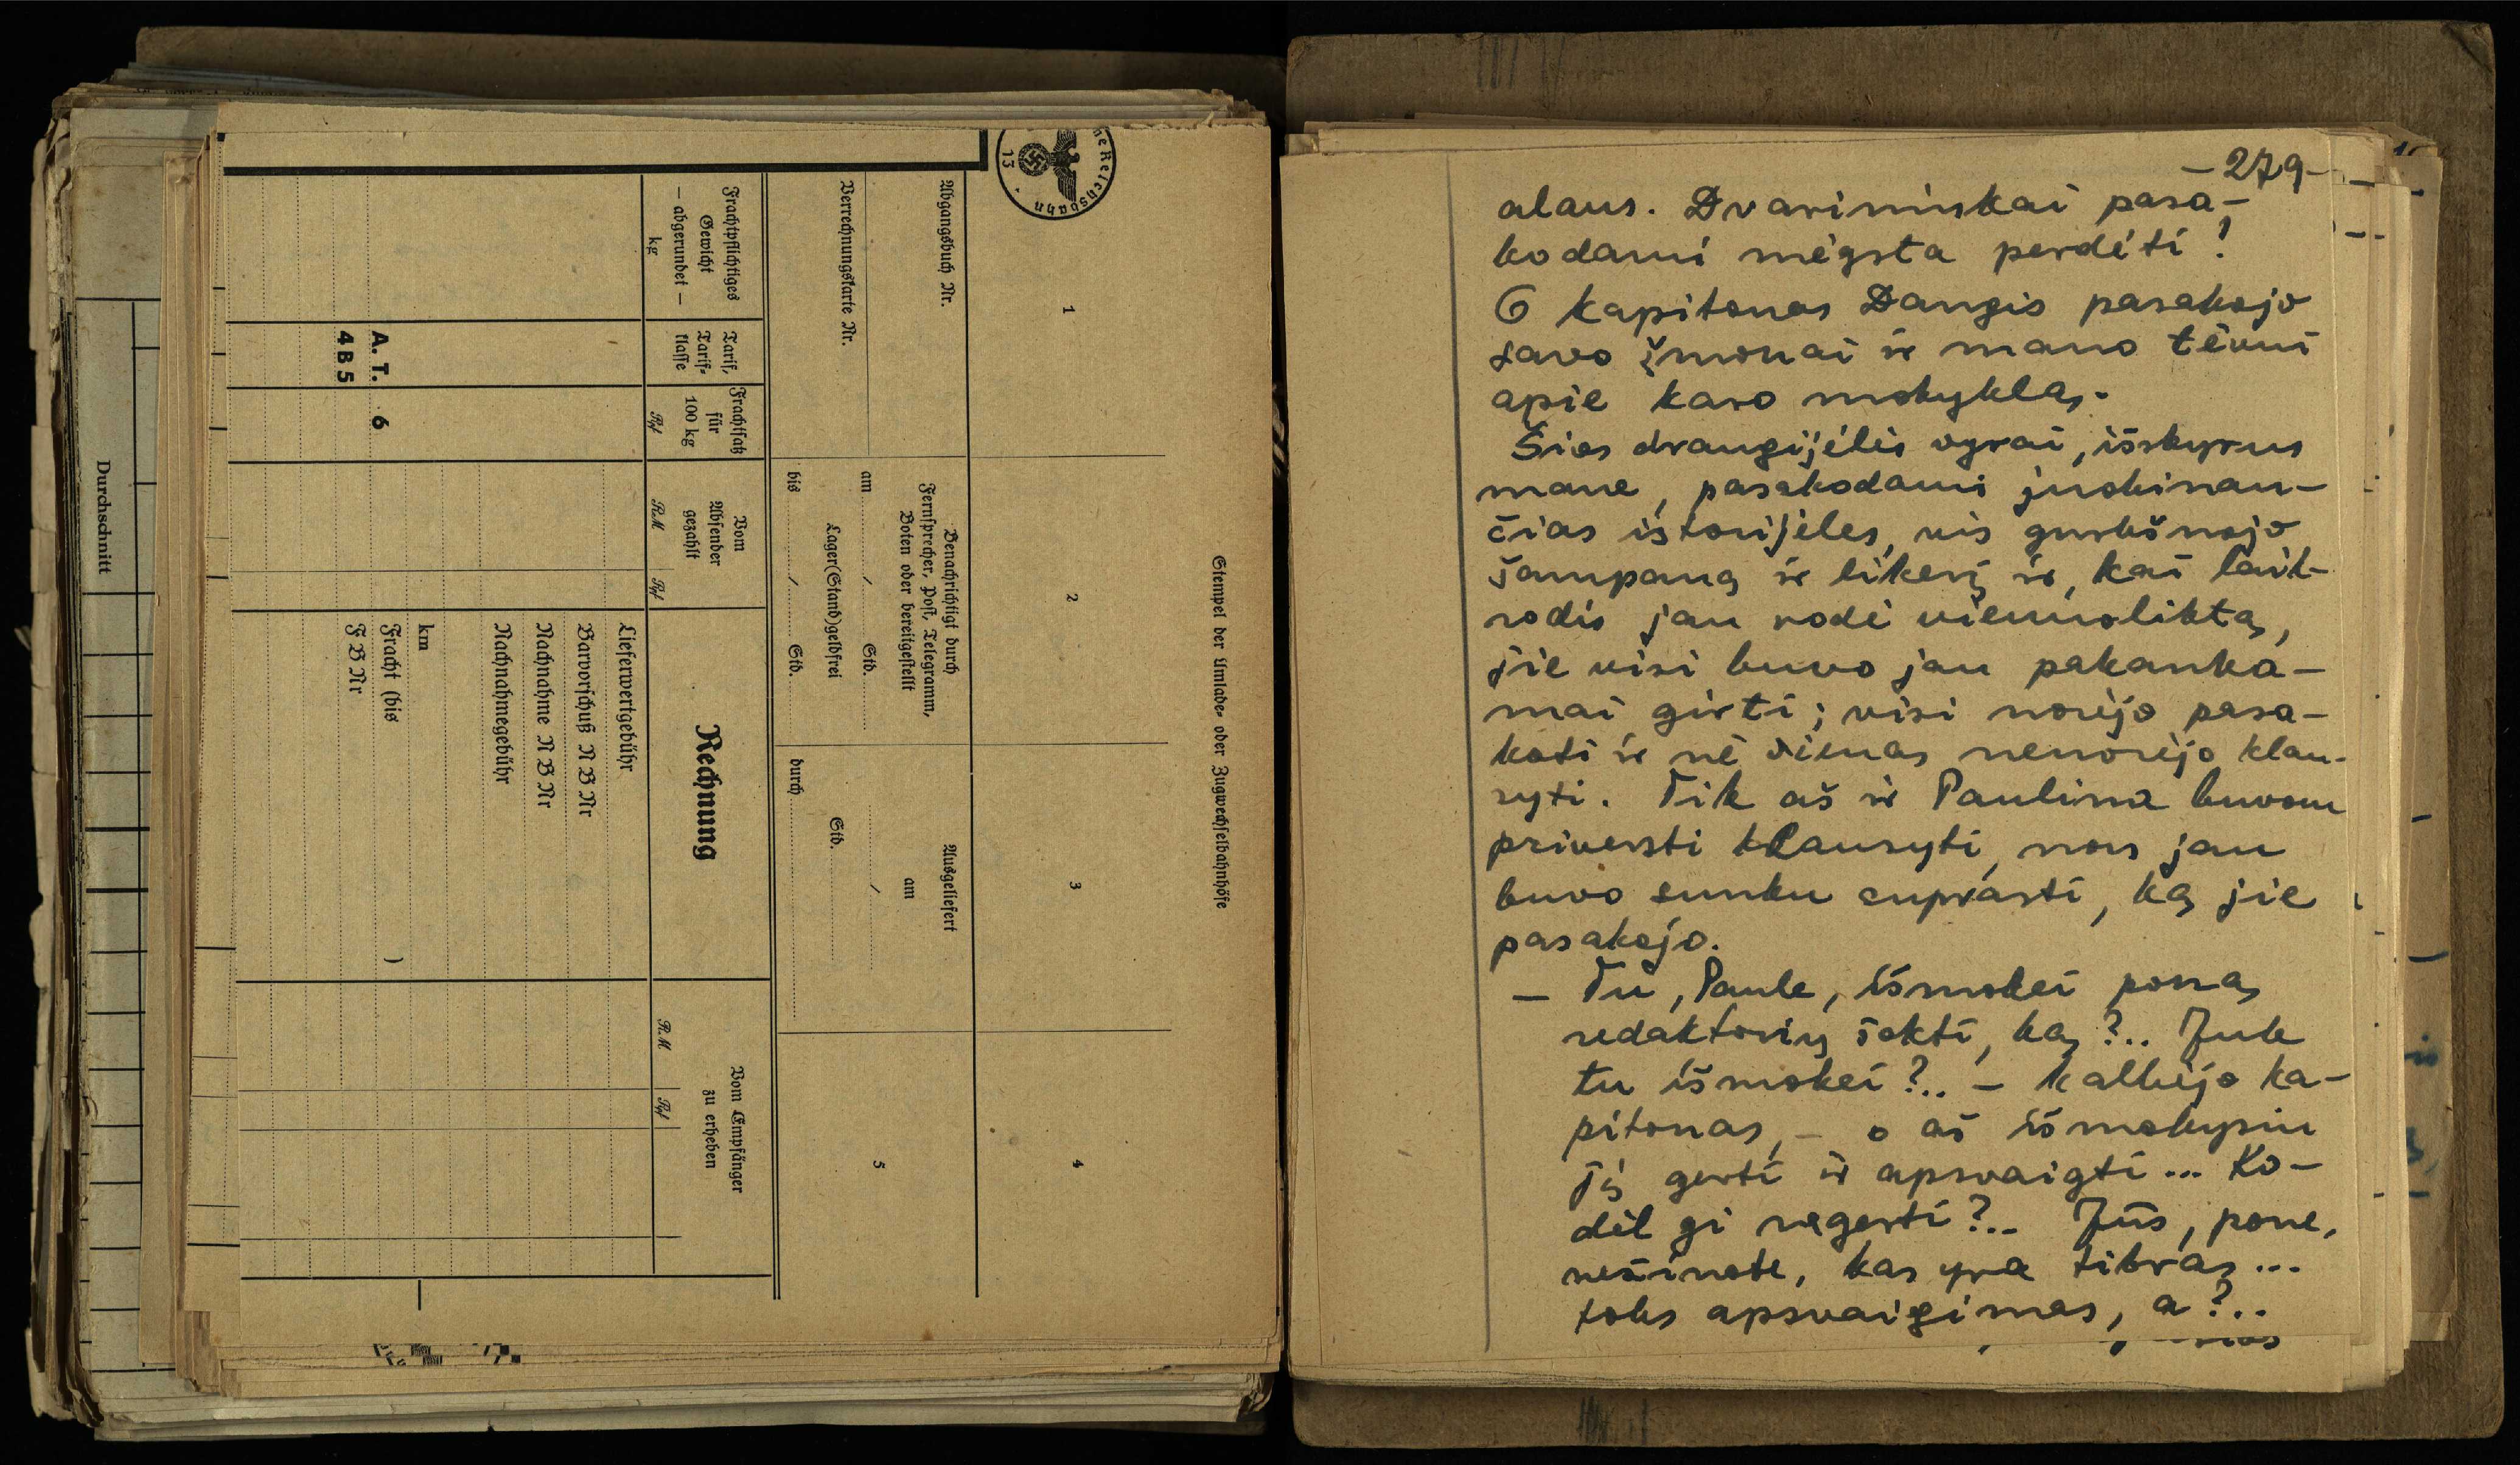 ne Reichsbahn
13
Stempel der Umlade- oder Zugwechselbahnhöfe
1
2
3
4
5
Abgangsbuch Nr.
Verrechnungskarte Nr.
Benachrichtigt durch
Fernsprecher, Post, Telegramm,
Boten oder bereitgestellt
am / Std.
Lager(Stand)geldfrei
bis / Std.
Ausgeliefert
am
/
Std.
durch
Frachtpflichtiges
Gewicht
— abgerundet —
kg
Tarif,
Tarif-
klasse
Frachtsatz
für
100 kg
Rpf
Vom
Absender
gezahlt
RM Rpf
Rechnung
Vom Empfänger
zu erheben
RM Rpf
Lieferwertgebühr
Barvorschuß N B Nr
Nachnahme N B Nr
Nachnahmegebühr
km
A. T. 6 Fracht (bis )
4 B 5 F B Nr
Durchschnitt
– 279 –
alaus. Dvarininkai pasa-
kodami mėgsta perdėti!
O kapitonas Dangis pasakojo
savo žmonai ir mano tėvui
apie karo mokyklą.
Šios draugijėlės vyrai, išskyrus
mane, pasakodami juokinan-
čias istorijėles, vis gurkšnojo
šampaną ir likerį ir, kai laik-
rodis jau rodė vienuoliktą,
jie visi buvo jau pakanka-
mai girti; visi norėjo pasa-
koti ir nė vienas nenorėjo klau-
syti. Tik aš ir Paulina buvom
priversti klausyti, nors jau
buvo sunku suprasti, ką jie
pasakojo.
– Tu, Paule, išmokei poną
redaktorių šokti, ką?.. Juk
tu išmokei?.. – kalbėjo ka-
pitonas, – o aš išmokysiu
jį gerti ir apsvaigti... Ko-
dėl gi negerti?.. Jūs, pone,
nežinote, kas yra tikras...
toks apsvaigimas, a?..